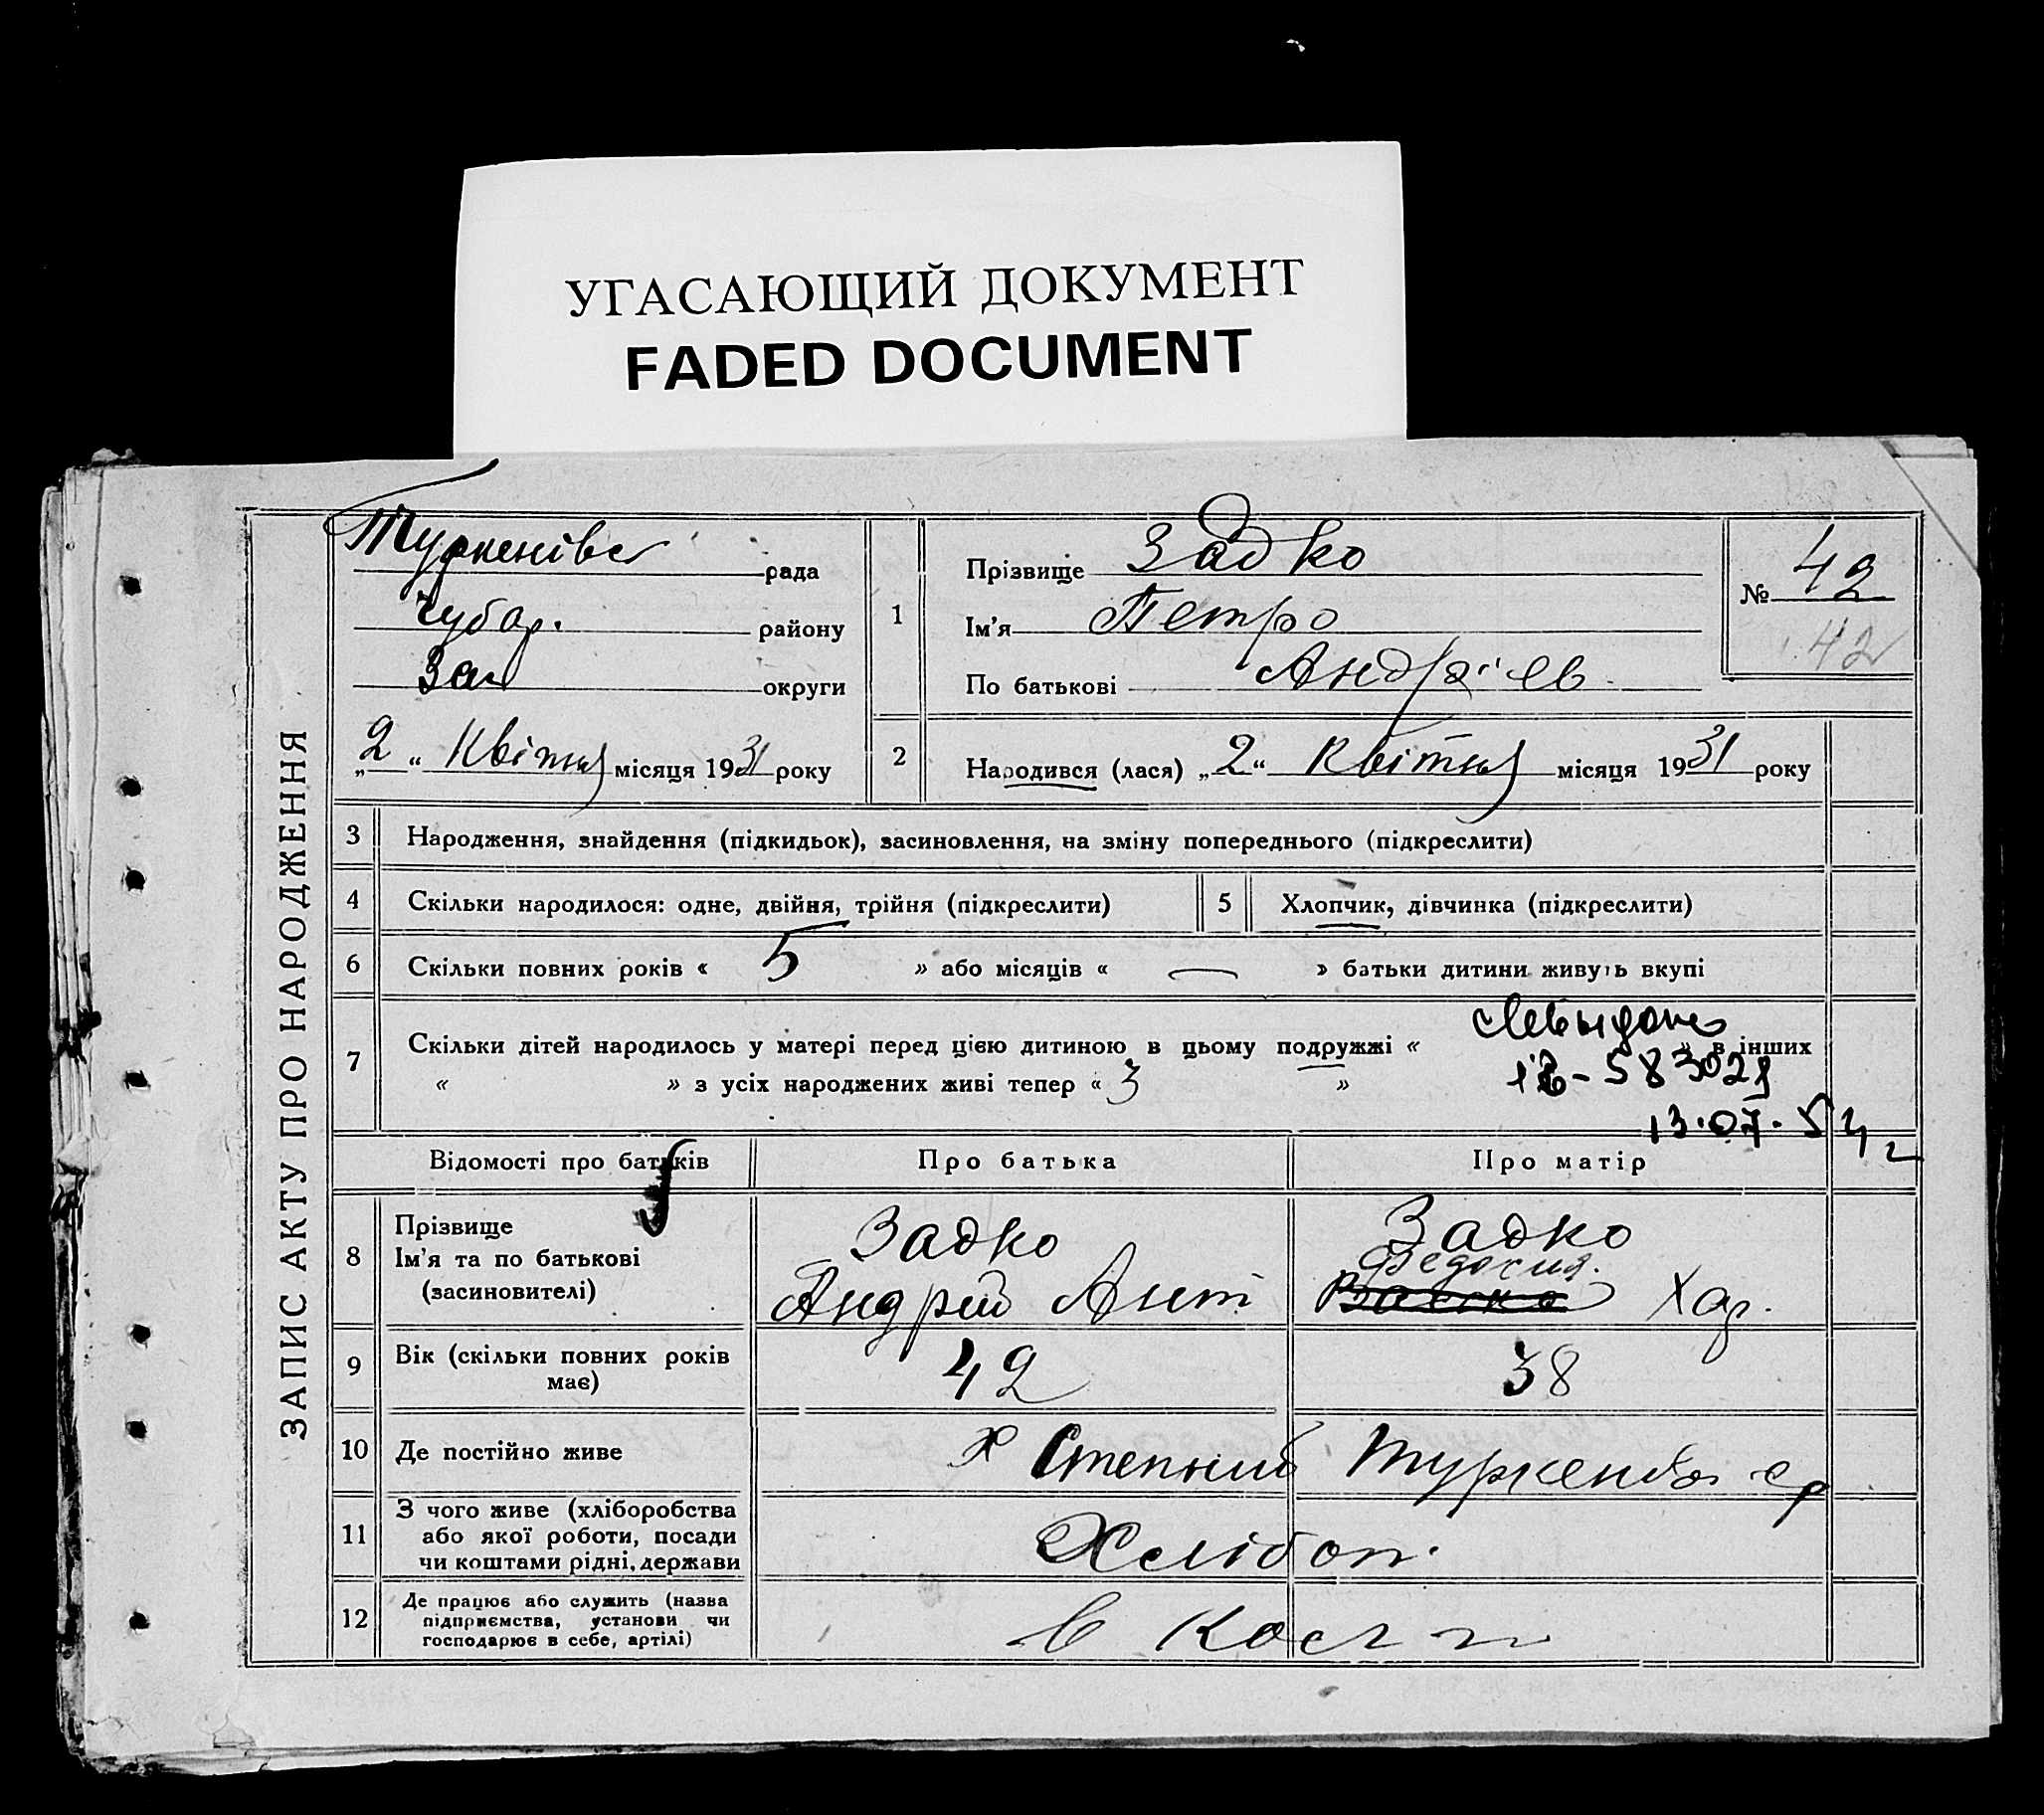 УГАСАЮЩИЙ ДОКУМЕНТ
FADED DOCUMENT
ЗАПИС АКТУ ПРО НАРОДЖЕННЯ
Туркенівс рада
Чубар. району
Зап округи
„2“ Квітня місяця 1931 року
1
Прізвище Задко
Ім'я Петро
По батькові Андріев
№ 42
42
2 Народився (лася) „2“ Квітня місяця 1931 року
3 Народження, знайдення (підкидьок), засиновлення, на зміну попереднього (підкреслити)
4 Скільки народилося: одне, двійня, трійня (підкреслити)
5 Хлопчик, дівчинка (підкреслити)
6 Скільки повних років « 5 » або місяців « — » батьки дитини живуть вкупі
7 Скільки дітей народилось у матері перед цією дитиною в цьому подружжі « » в інших
« » з усіх народжених живі тепер « 3 »
583021
13.07.54 г
Відомості про батьків Про батька Про матір
8
Прізвище Задко Задко
Ім'я та по батькові Федосия.
(засиновителі) Андрій Ант Хар.
9 Вік (скільки повних років 42 38
має)
10 Де постійно живе х Степний Туркенівс ср
11
З чого живе (хліборобства
або якої роботи, посади Хлібоп.
чи коштами рідні, держави
12
Де працює або служить (назва
підприємства, установи чи
господарює в себе, артілі) в